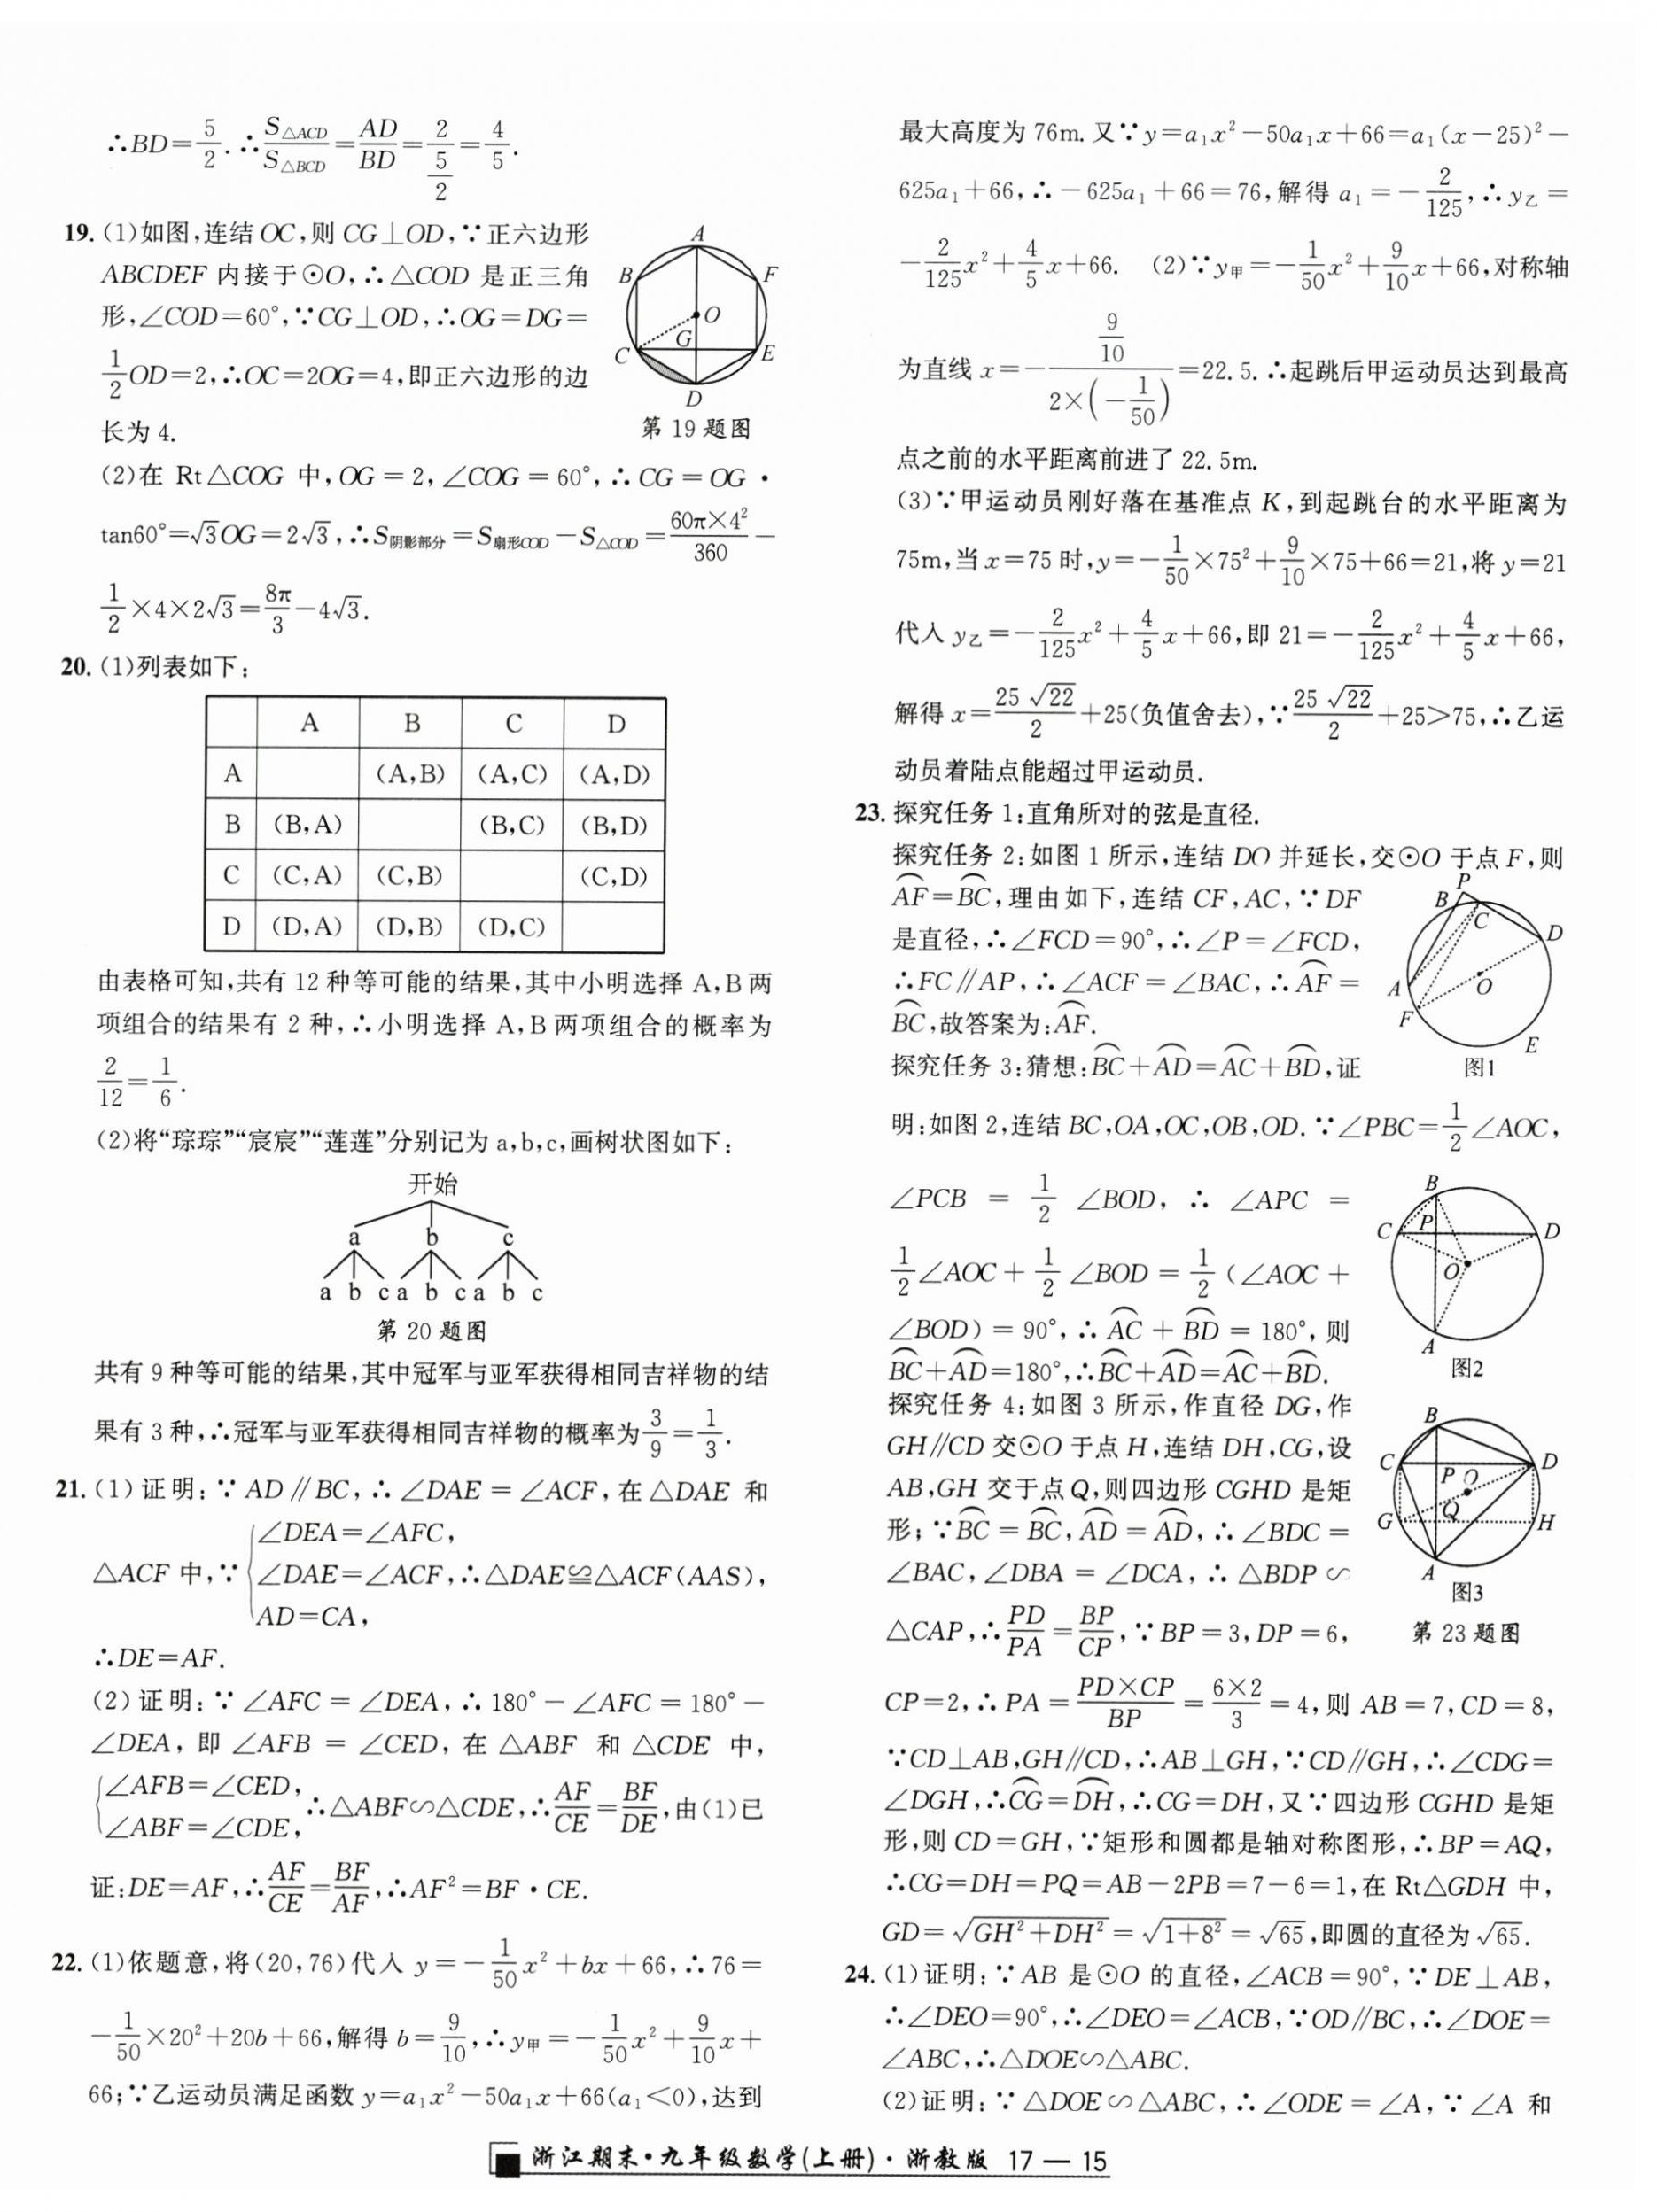 ∴BD=5/2.∴S△ACD/S△BCD=AD/BD=2/(5/2)=4/5.
19.(1)如图,连结OC,则CG⊥OD,∵正六边形
ABCDEF内接于⊙O,∴△COD是正三角
形,∠COD=60°,∵CG⊥OD,∴OG=DG=
1/2OD=2,∴OC=2OG=4,即正六边形的边
长为4.
A
B
F
O
G
C
E
D
第19题图
(2)在Rt△COG中,OG=2,∠COG=60°,∴CG=OG·
tan60°=√3OG=2√3,∴S阴影部分=S扇形COD-S△COD=60π×4²/360-
1/2×4×2√3=8π/3-4√3.
20.(1)列表如下:
A B C D
A (A,B) (A,C) (A,D)
B (B,A) (B,C) (B,D)
C (C,A) (C,B) (C,D)
D (D,A) (D,B) (D,C)
由表格可知,共有12种等可能的结果,其中小明选择A,B两
项组合的结果有2种,∴小明选择A,B两项组合的概率为
2/12=1/6.
(2)将“琮琮”“宸宸”“莲莲”分别记为a,b,c,画树状图如下:
开始
a b c
a b c a b c a b c
第20题图
共有9种等可能的结果,其中冠军与亚军获得相同吉祥物的结
果有3种,∴冠军与亚军获得相同吉祥物的概率为3/9=1/3.
21.(1)证明:∵AD∥BC,∴∠DAE=∠ACF,在△DAE和
∠DEA=∠AFC,
△ACF中,∵{∠DAE=∠ACF,∴△DAE≌△ACF(AAS),
AD=CA,
∴DE=AF.
(2)证明:∵∠AFC=∠DEA,∴180°-∠AFC=180°-
∠DEA,即∠AFB=∠CED,在△ABF和△CDE中,
{∠AFB=∠CED,
∠ABF=∠CDE,∴△ABF∽△CDE,∴AF/CE=BF/DE,由(1)已
证:DE=AF,∴AF/CE=BF/AF,∴AF²=BF·CE.
22.(1)依题意,将(20,76)代入y=-1/50x²+bx+66,∴76=
-1/50×20²+20b+66,解得b=9/10,∴y甲=-1/50x²+9/10x+
66;∵乙运动员满足函数y=a₁x²-50a₁x+66(a₁<0),达到
最大高度为76m.又∵y=a₁x²-50a₁x+66=a₁(x-25)²-
625a₁+66,∴-625a₁+66=76,解得a₁=-2/125,∴y乙=
-2/125x²+4/5x+66. (2)∵y甲=-1/50x²+9/10x+66,对称轴
为直线x=-(9/10)/(2×(-1/50))=22.5.∴起跳后甲运动员达到最高
点之前的水平距离前进了22.5m.
(3)∵甲运动员刚好落在基准点K,到起跳台的水平距离为
75m,当x=75时,y=-1/50×75²+9/10×75+66=21,将y=21
代入y乙=-2/125x²+4/5x+66,即21=-2/125x²+4/5x+66,
解得x=25√22/2+25(负值舍去),∵25√22/2+25>75,∴乙运
动员着陆点能超过甲运动员.
23.探究任务1:直角所对的弦是直径.
探究任务2:如图1所示,连结DO并延长,交⊙O于点F,则
⌒AF=⌒BC,理由如下,连结CF,AC,∵DF
是直径,∴∠FCD=90°,∴∠P=∠FCD,
∴FC∥AP,∴∠ACF=∠BAC,∴⌒AF=
⌒BC,故答案为:⌒AF.
P
B
C
D
A
O
F
E
图1
探究任务3:猜想:⌒BC+⌒AD=⌒AC+⌒BD,证
明:如图2,连结BC,OA,OC,OB,OD.∵∠PBC=1/2∠AOC,
∠PCB=1/2∠BOD,∴∠APC=
1/2∠AOC+1/2∠BOD=1/2(∠AOC+
∠BOD)=90°,∴⌒AC+⌒BD=180°,则
⌒BC+⌒AD=180°,∴⌒BC+⌒AD=⌒AC+⌒BD.
B
C
P
D
O
A
图2
探究任务4:如图3所示,作直径DG,作
GH∥CD交⊙O于点H,连结DH,CG,设
AB,GH交于点Q,则四边形CGHD是矩
形;∵⌒BC=⌒BC,⌒AD=⌒AD,∴∠BDC=
∠BAC,∠DBA=∠DCA,∴△BDP∽
△CAP,∴PD/PA=BP/CP,∵BP=3,DP=6,
B
C
P
O
D
G
Q
H
A
图3
第23题图
CP=2,∴PA=PD×CP/BP=6×2/3=4,则AB=7,CD=8,
∵CD⊥AB,GH∥CD,∴AB⊥GH,∵CD∥GH,∴∠CDG=
∠DGH,∴⌒CG=⌒DH,∴CG=DH,又∵四边形CGHD是矩
形,则CD=GH,∵矩形和圆都是轴对称图形,∴BP=AQ,
∴CG=DH=PQ=AB-2PB=7-6=1,在Rt△GDH中,
GD=√(GH²+DH²)=√(1+8²)=√65,即圆的直径为√65.
24.(1)证明:∵AB是⊙O的直径,∠ACB=90°,∵DE⊥AB,
∴∠DEO=90°,∴∠DEO=∠ACB,∵OD∥BC,∴∠DOE=
∠ABC,∴△DOE∽△ABC.
(2)证明:∵△DOE∽△ABC,∴∠ODE=∠A,∵∠A和
浙江期末·九年级数学(上册)·浙教版 17—15